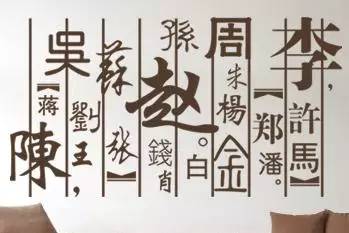 李，
許馬
【郑】潘。
周
朱楊
金
孫
赵。白
錢肖
蘇
张】
劉王，
吳
【蒋
陳